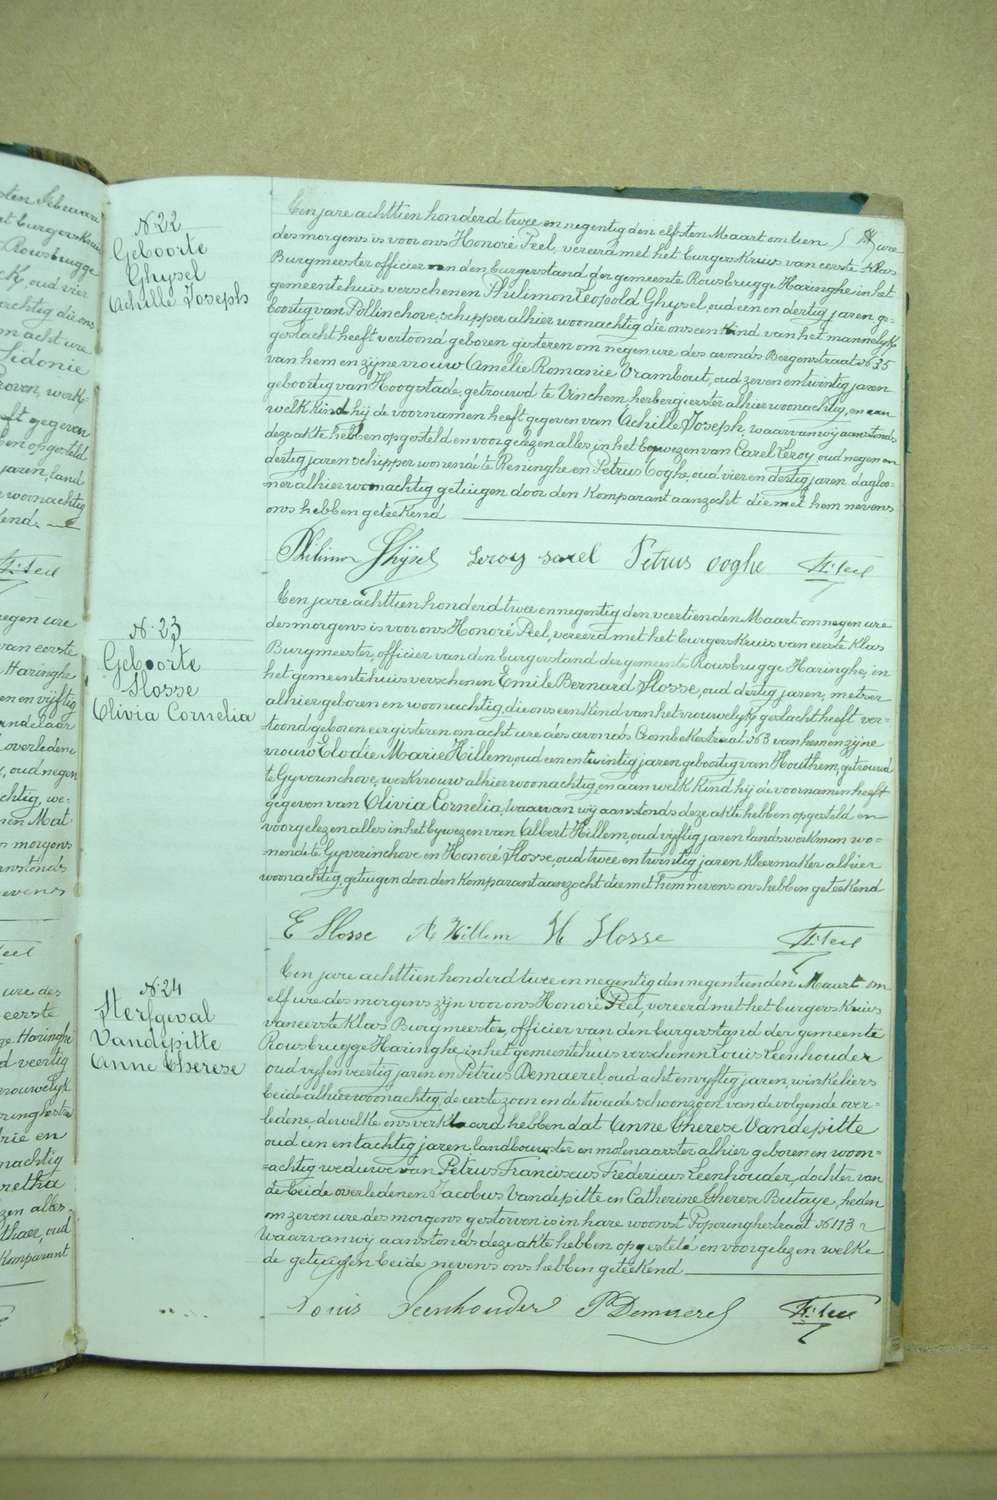 N. 22
Geboorte
Ghysel
Achille Joseph
Een jare achttien honderd twee en negentig den elfsten Maart om tien ure
des morgens is voor ons Honoré Peel, vereerd met het burgers Kruis van eerste Klas
Burgmeester officier van den burgerstand der gemeente Rousbrugge Haringhe in het
gemeentehuis verschenen Philimon Leopold Ghysel, oud een en dertig jaren ge-
boortig van Pollinchove, schipper alhier woonachtig die ons een Kind van het mannelyk
geslacht heeft vertoond geboren gisteren om negen ure des avonds Bergenstraat No 35
van hem en zijne vrouw Amelie Romanie Vrambout, oud zeven en twintig jaren
geboortig van Hoogstade, getrouwd te Vinchem herbergierster alhier woonachtig, en aan
welk Kind hij de voornamen heeft gegeven van Achille Joseph, waarvan wij aanstonds
deze akte hebben opgesteld en voorgelezen alles in het bywezen van Carel Leroy, oud negen en
dertig jaren schipper wonend te Reninghe en Petrus Ooghe, oud vier en dertig jaren dagloo-
ner alhier woonachtig getuigen door den Komparant aanzocht die met hem nevens
ons hebben geteekend
Philimon Ghÿsel Leroy Carel Petrus ooghe H. Peel
N. 23
Geboorte
Slosse
Olivia Cornelia
Een jare achttien honderd twee en negentig den veertienden Maart om negen ure
des morgens is voor ons Honoré Peel, vereerd met het burgers Kruis van eerste Klas
Burgmeester, officier van den burgerstand der gemeente Rousbrugge Haringhe, in
het gemeentehuis verschenen Emile Bernard Slosse, oud dertig jaren, metser
alhier geboren en woonachtig, die ons een Kind van het vrouwelyk geslacht heeft ver-
toond geboren eergisteren om acht ure des avonds Crombekestraat No 63 van hem en zijne
vrouw Elodie Marie Hillem, oud een en twintig jaren geboortig van Houthem, getrouwd
te Gyverinchove, werkvrouw alhier woonachtig, en aan welk Kind hij de voornamen heeft
gegeven van Olivia Cornelia, waarvan wij aanstonds deze akte hebben opgesteld en
voorgelezen alles in het bywezen van Albert Hillem, oud vyftig jaren landswerkman wo-
nende te Gyverinchove en Honoré Slosse, oud twee en twintig jaren Kleermaker alhier
woonachtig, getuigen door den Komparant aanzocht die met hem nevens ons hebben geteekend
E Slosse A Hillem H Slosse H. Peel
N. 24
Sterfgeval
Vandepitte
Anne Therese
Een jare achttien honderd twee en negentig den negentienden Maart om
elf ure des morgens zijn voor ons Honoré Peel, vereerd met het burgers Kruis
van eerste Klas Burgmeester, officier van den burgerstand der gemeente
Rousbrugge Haringhe, in het gemeentehuis verschenen Louis Leenhouder
oud vyf en veertig jaren en Petrus Demaerel, oud acht en vyftig jaren, winkeliers
beide alhier woonachtig, de eerste zoon en de tweede schoonzoon van de volgende over-
ledene, dewelke ons verklaard hebben dat Anne Therese Vandepitte
oud een en tachtig jaren landbouwster en molenaarster alhier geboren en woon-
achtig weduwe van Petrus Franciscus Fredericus Leenhouder, dochter van
de beide overledenen Jacobus Vandepitte en Catherine Therese Beutaye, heden
om zeven ure des morgens gestorven is in hare woonst Poperinghestraat No 113
Waarvan wij aanstonds deze akte hebben opgesteld en voorgelezen welke
de getuigen beide nevens ons hebben geteekend
Louis Leenhouder P Demaerel H. Peel